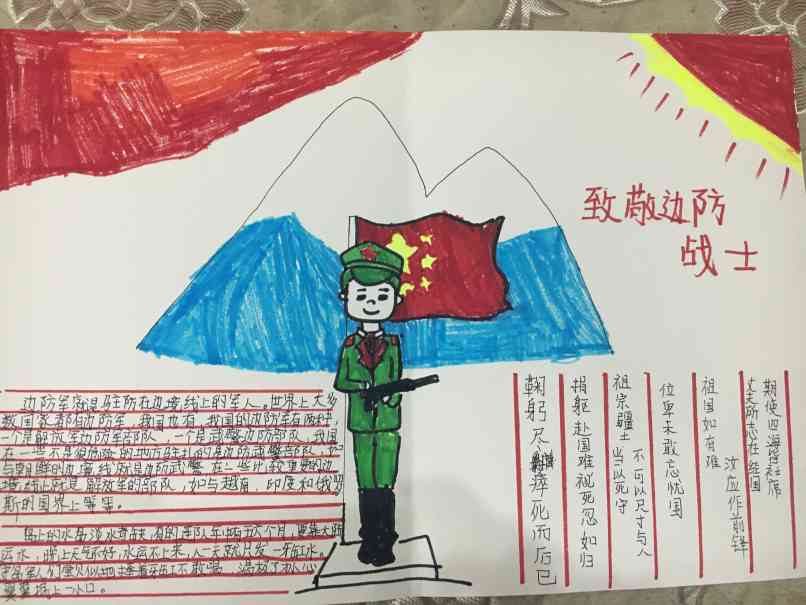 致敬边防
战士
边防军就是驻防在边境线上的军人。世界上大多
数国家都有边防军，我国也有，我国的边防军有两种，
一个是解放军边防军部队，一个是武警边防部队，我国
在一些不是很危险的地方驻扎的是边防武警部队，如
与朝鲜的边境线就是边防武警，在一些比较重要的边
境线上就是解放军的部队，如与越南，印度和俄罗
斯的国界上等等。
岛上的水是淡水奇缺，有的连队年出五六个月，要靠大陆
运水，遇上天气不好，水运不上来，人一天就只发一牙缸水，
捧着牙缸不敢喝
上一小口。
期使四海皆衽席
丈夫所志在经国
祖国如有难
汝应作前锋
位卑未敢忘忧国
祖宗疆土
当以死守
不可以尺寸与人
捐躯赴国难视死忽如归
鞠躬尽瘁死而后已